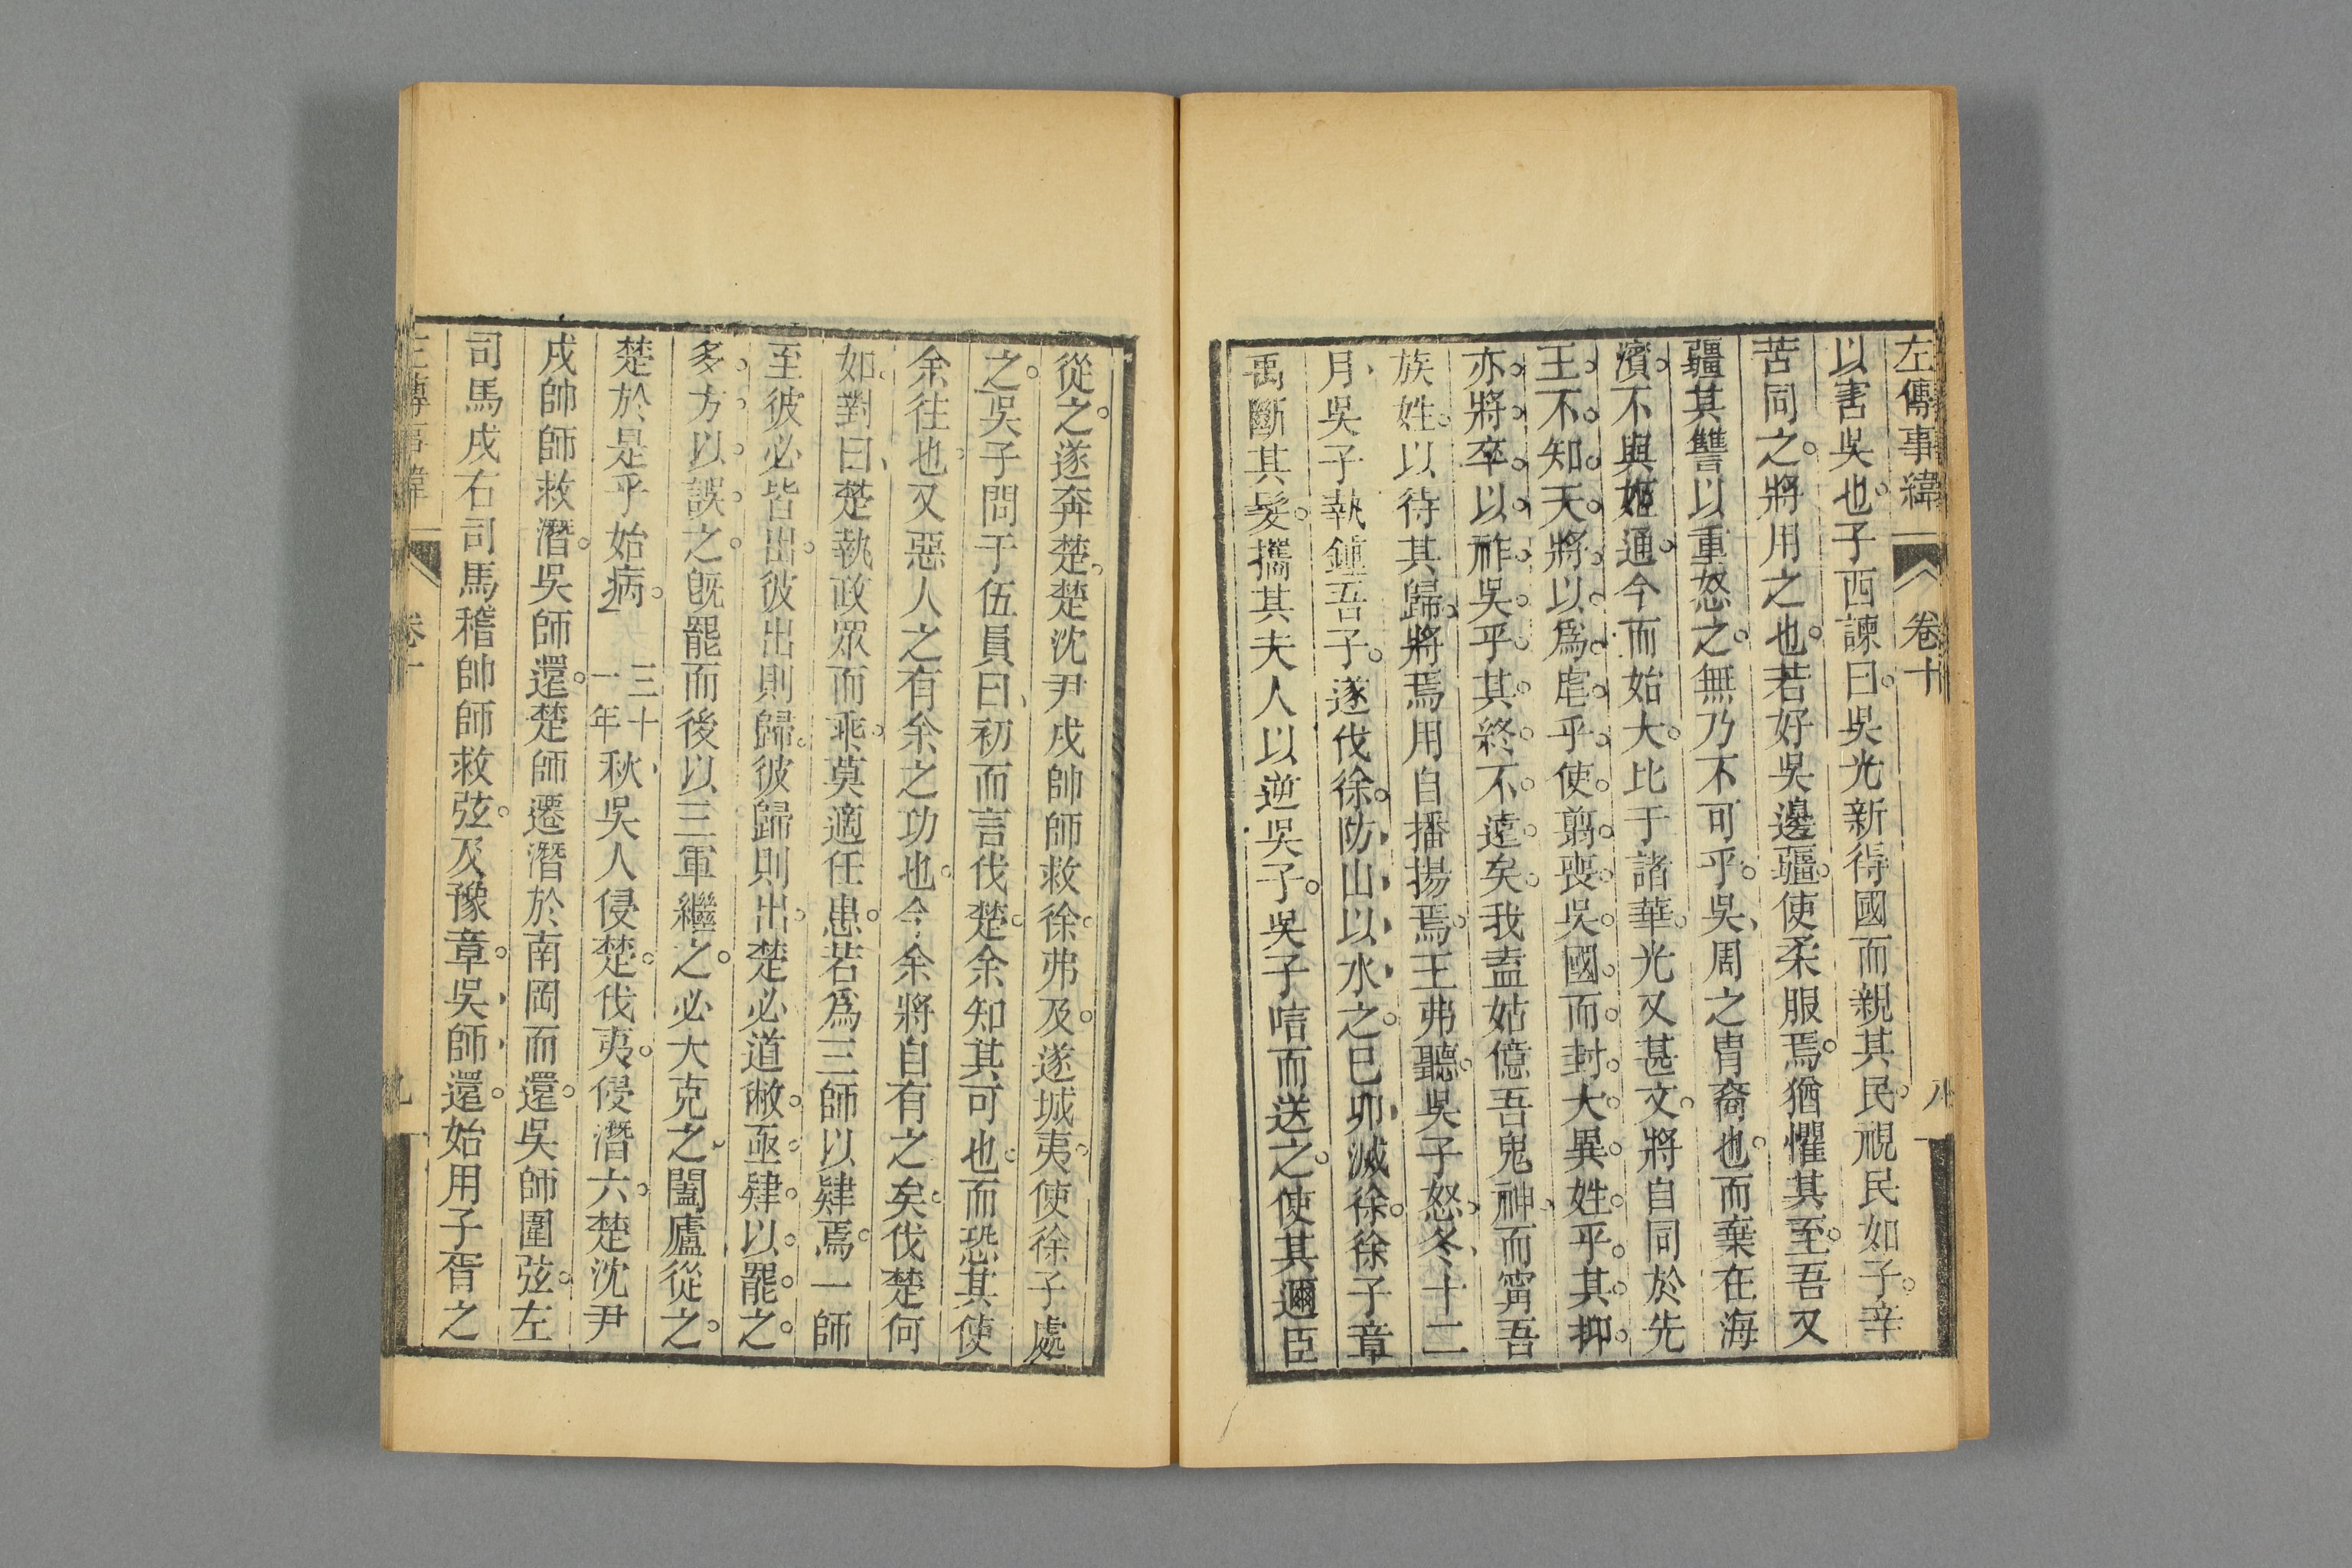 左傳事緯 卷十 八
以害吳也子西諫曰吳光新得國而親其民視民如子辛
苦同之將用之也若好吳邊疆使柔服焉猶懼其至吾又
疆其讐以重怒之無乃不可乎吳周之胄裔也而棄在海
濱不與姬通今而始大比于諸華光又甚文將自同於先
王不知天將以爲虐乎使翦喪吳國而封大異姓乎其抑
亦將卒以祚吳乎其終不遠矣我盍姑億吾鬼神而甯吾
族姓以待其歸將焉用自播揚焉王弗聽吳子怒冬十二
月吳子執鍾吾子遂伐徐防山以水之巳卯滅徐徐子章
禹斷其髮攜其夫人以逆吳子吳子唁而送之使其邇臣
從之遂奔楚楚沈尹戌帥師救徐弗及遂城夷使徐子處
之吳子問于伍員曰初而言伐楚余知其可也而恐其使
余往也又惡人之有余之功也今余將自有之矣伐楚何
如對曰楚執政眾而乖莫適任患若爲三師以肄焉一師
至彼必皆出彼出則歸彼歸則出楚必道敝亟肄以罷之
多方以誤之旣罷而後以三軍繼之必大克之闔廬從之
楚於是乎始病三十一年秋吳人侵楚伐夷侵潛六楚沈尹
戌帥師救潛吳師還楚師遷潛於南岡而還吳師圍弦左
司馬戌右司馬稽帥師救弦及豫章吳師還始用子胥之
卷十